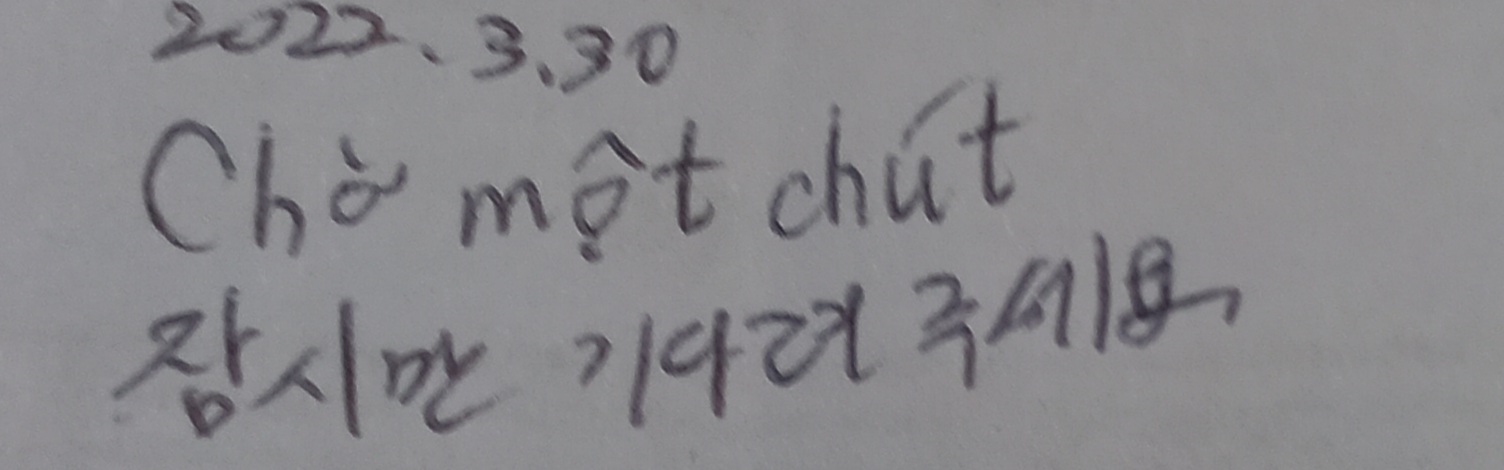 2022.3.30
Chờ một chút
잠시만 기다려 주세요